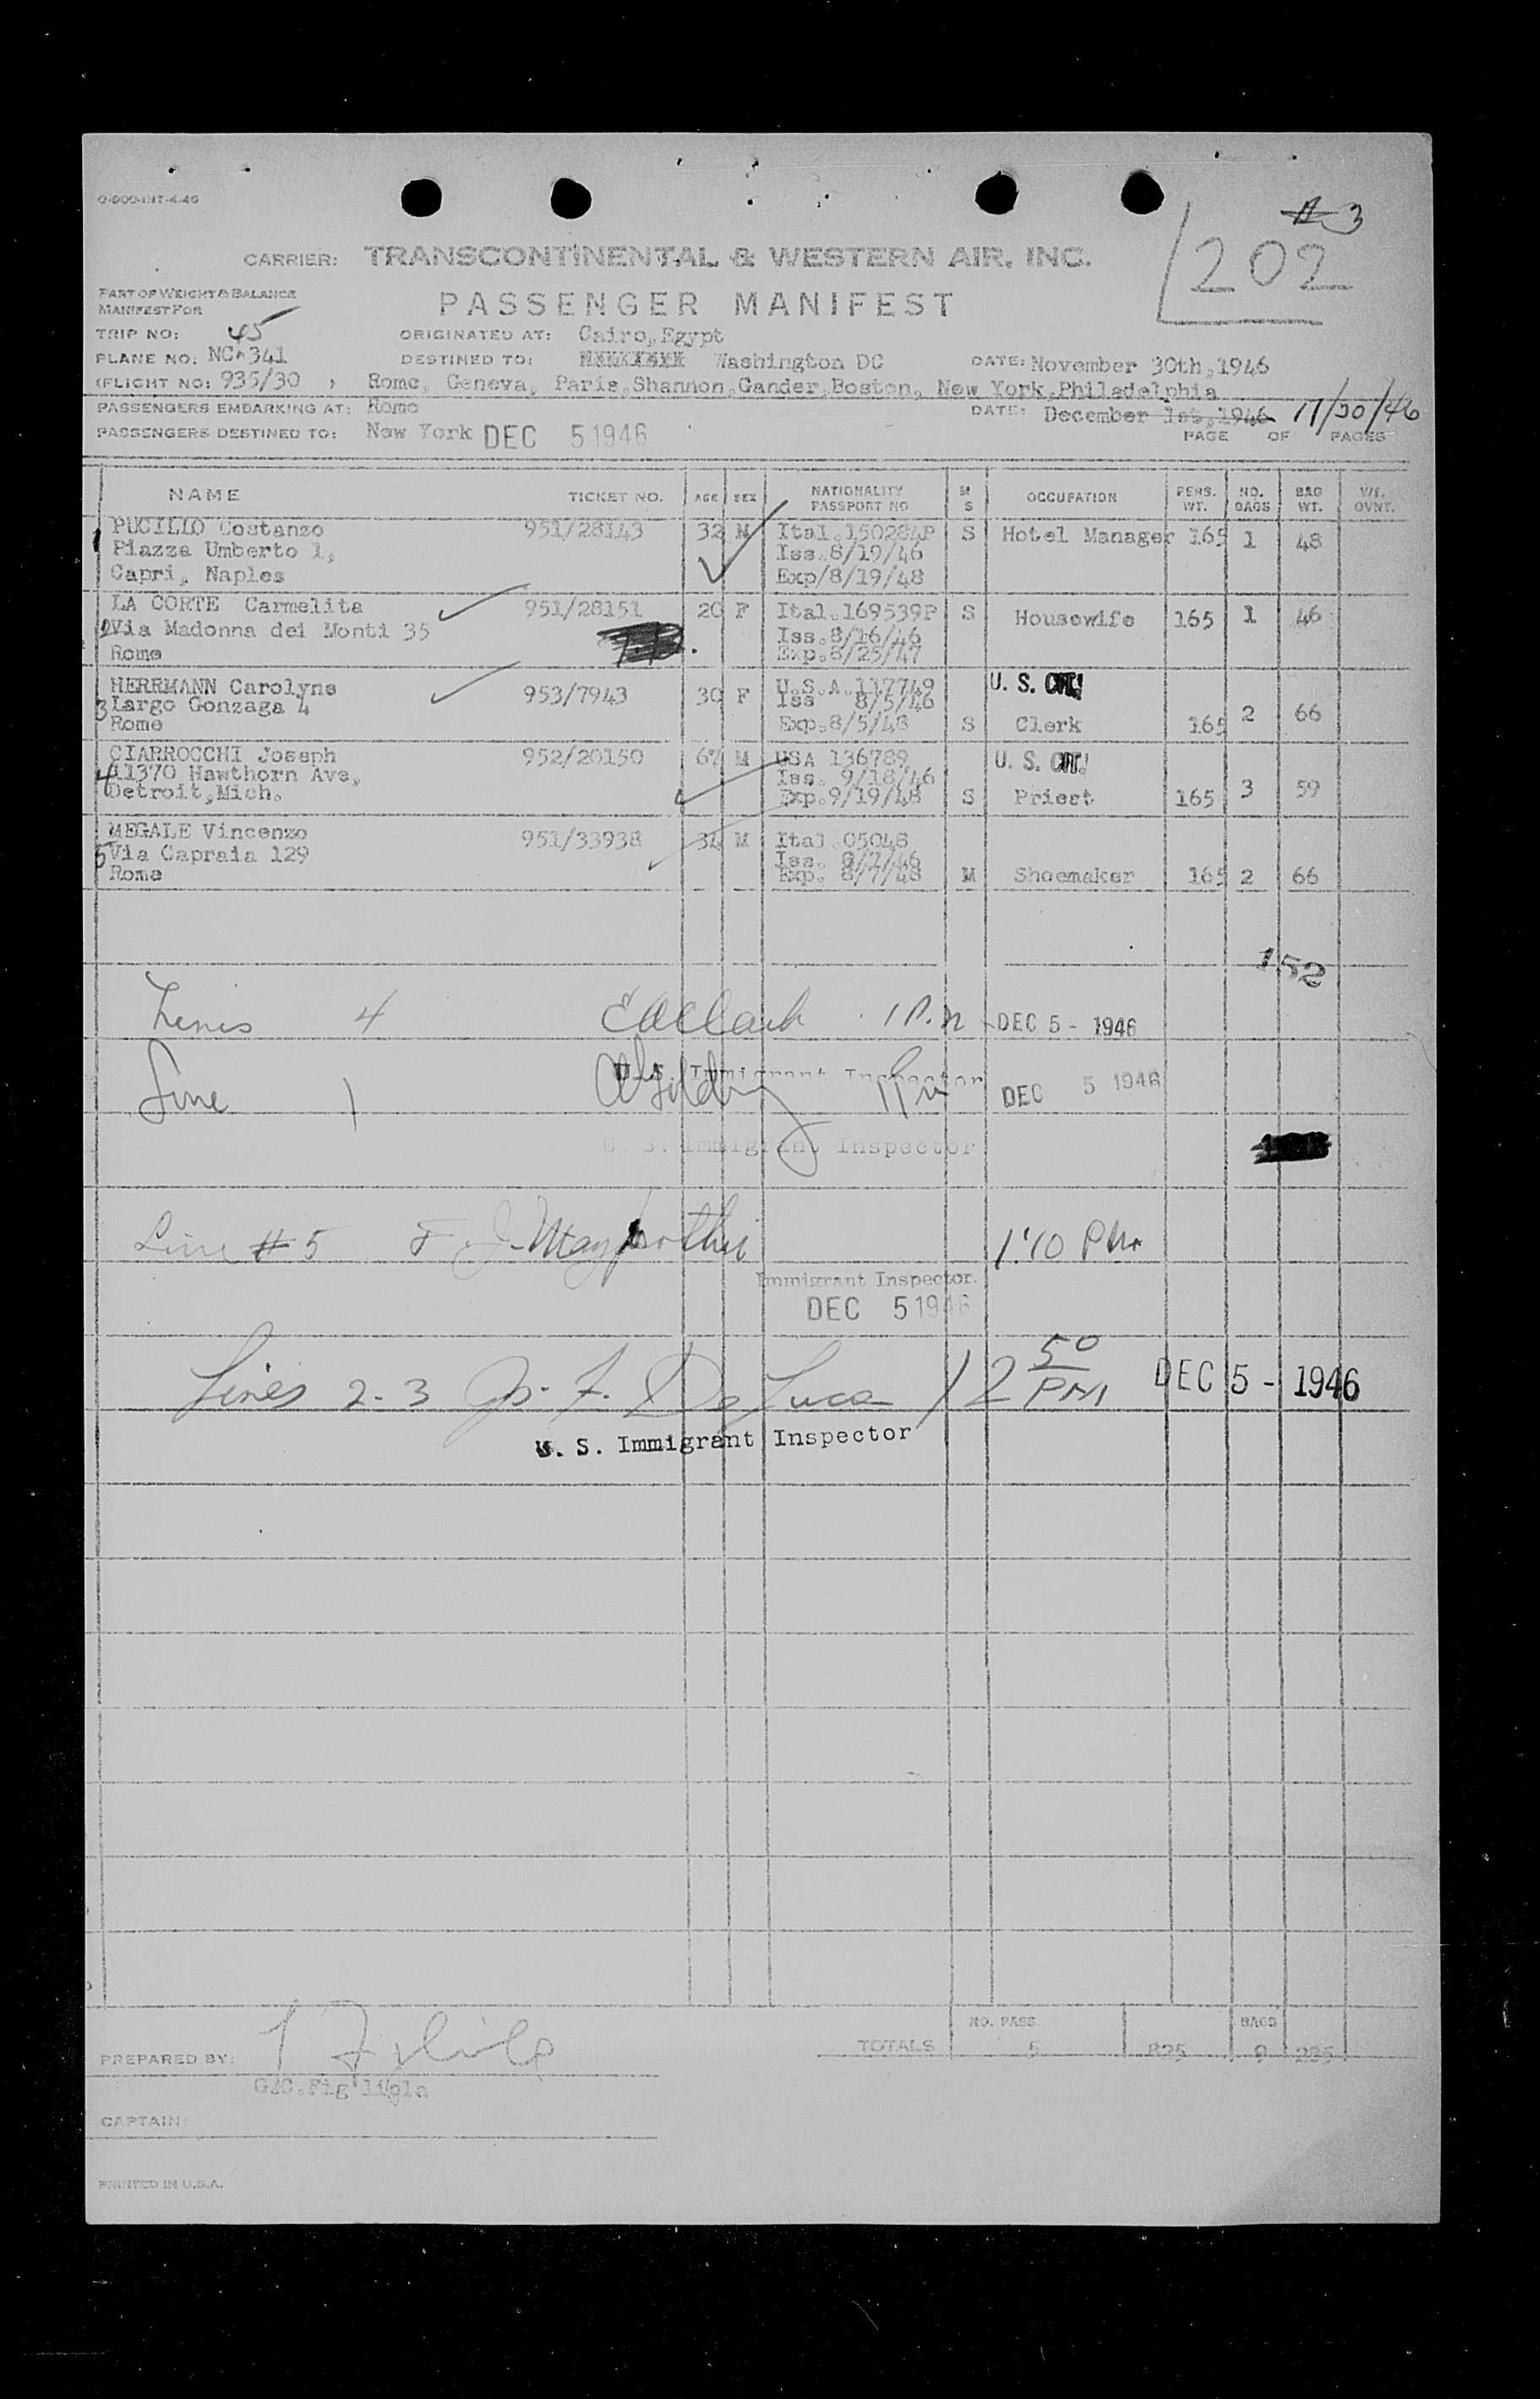 O-900-INT-4-46
# 3
202
CARRIER: TRANSCONTINENTAL & WESTERN AIR, INC.
PART OF WEIGHT & BALANCE
MANIFEST FOR
PASSENGER MANIFEST
TRIP NO: 45 ORIGINATED AT: Cairo, Egypt
PLANE NO: NC 341 DESTINED TO: Washington DC DATE: November 30th, 1946
(FLIGHT NO: 935/30 ) Rome, Geneva, Paris, Shannon, Gander, Boston, New York, Philadelphia
PASSENGERS EMBARKING AT: Rome DATE: December 1st, 1946 11/30/46
PASSENGERS DESTINED TO: New York DEC 5 1946 PAGE OF PAGES
NAME TICKET NO. AGE SEX NATIONALITY PASSPORT NO M S OCCUPATION PERS. WT. NO. BAGS BAG WT. WT. OVNT.
1 PUCILLO Costanzo 951/28143 32 M Ital.150284P S Hotel Manager 165 1 48
Piazza Umberto 1, Iss.8/19/46
Capri, Naples Exp/8/19/48
LA CORTE Carmelita 951/28151 20 F Ital.169539P S Housewife 165 1 46
2 Via Madonna dei Monti 35 Iss.8/16/46
Rome Exp.8/25/47
HERRMANN Carolyne 953/7943 30 F U.S.A.117749 U. S. CIT.
3 Largo Gonzaga 4 Iss 8/5/46 2 66
Rome Exp.8/5/48 S Clerk 165
CIARROCCHI Joseph 952/20150 67 M USA 136789 U. S. CIT.
4 11370 Hawthorn Ave, Iss. 9/18/46
Detroit, Mich. Exp.9/19/48 S Priest 165 3 59
MEGALE Vincenzo 951/33938 34 M Ital.05048
5 Via Capraia 129 Iss. 8/7/46
Rome Exp. 8/7/48 M Shoemaker 165 2 66
152
Lines 4 DEC 5 - 1946
U. S. Immigrant Inspector
Line 1 DEC 5 1946
U. S. Immigrant Inspector
Line # 5 F J. 1:10 PM
Immigrant Inspector.
DEC 5 1946
Lines 2-3 De Luca 12 50 PM DEC 5 - 1946
U. S. Immigrant Inspector
NO. PASS. BAGS
TOTALS 5 825 9 285
PREPARED BY:
CAPTAIN:
PRINTED IN U.S.A.